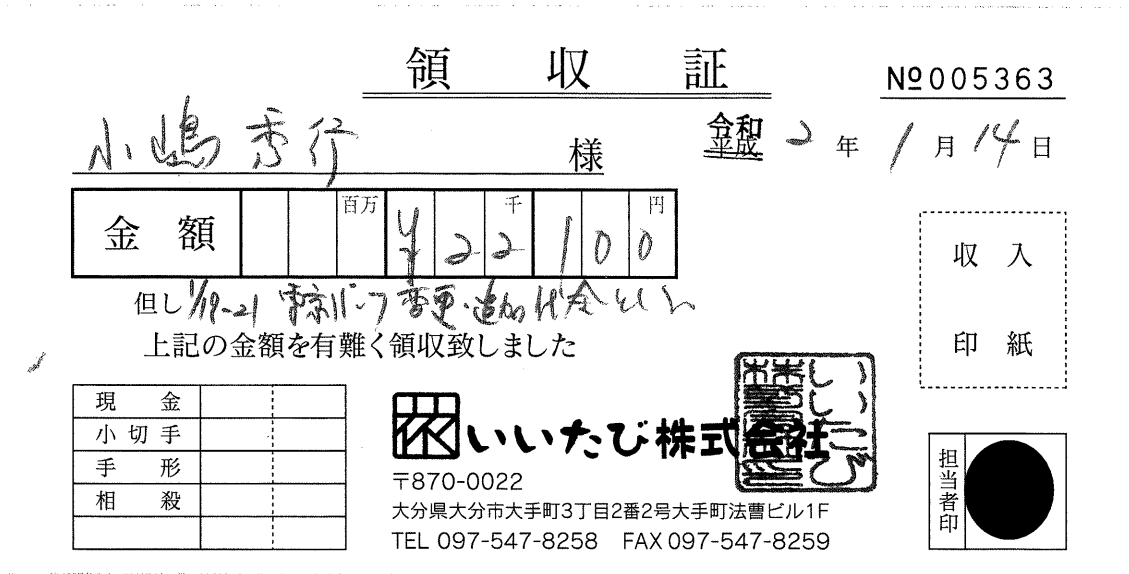 領収証
№005363
小嶋秀行 様
令和 平成 2年1月14日
金額 百万 千 円 ¥22100
但し 1/19-21 東京パック変更・追加代金として
上記の金額を有難く領収致しました
収入
印紙
現金
小切手
手形
相殺
いいたび株式会社
〒870-0022
大分県大分市大手町3丁目2番2号大手町法曹ビル1F
TEL 097-547-8258 FAX 097-547-8259
担当者印